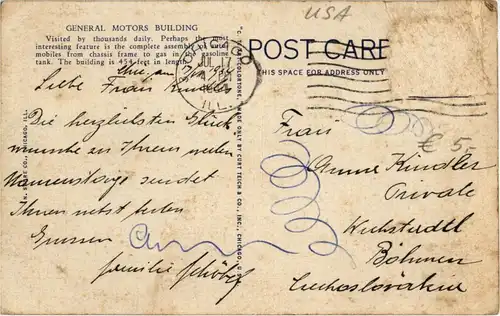 GENERAL MOTORS BUILDING
Visited by thousands daily. Perhaps the most
interesting feature is the complete assembly of auto-
mobiles from chassis frame to gas in the gasoline
tank. The building is 454 feet in length.
Liebe Frau Kindler
Die herzlichsten Glück
wünsche zu Ihrem
sendet
Ihnen nebst besten
Grüssen
Familie
CHICAGO
JUL 17
ILL.
C. T. ART-COLORTONE MADE ONLY BY CURT TEICH & CO., INC., CHICAGO, U.S.A.
CO., CHICAGO, ILL.
USA
POST CARD
THIS SPACE FOR ADDRESS ONLY
€ 5,-
Frau
Anna Kindler
Private
Böhmen
Czechoslovakia